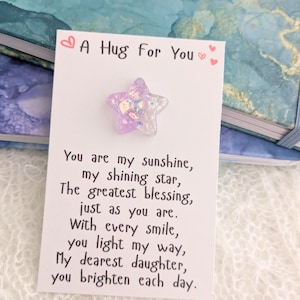 A Hug For You
You are my sunshine,
my shining star,
The greatest blessing,
just as you are.
With every smile,
you light my way,
My dearest daughter,
you brighten each day.